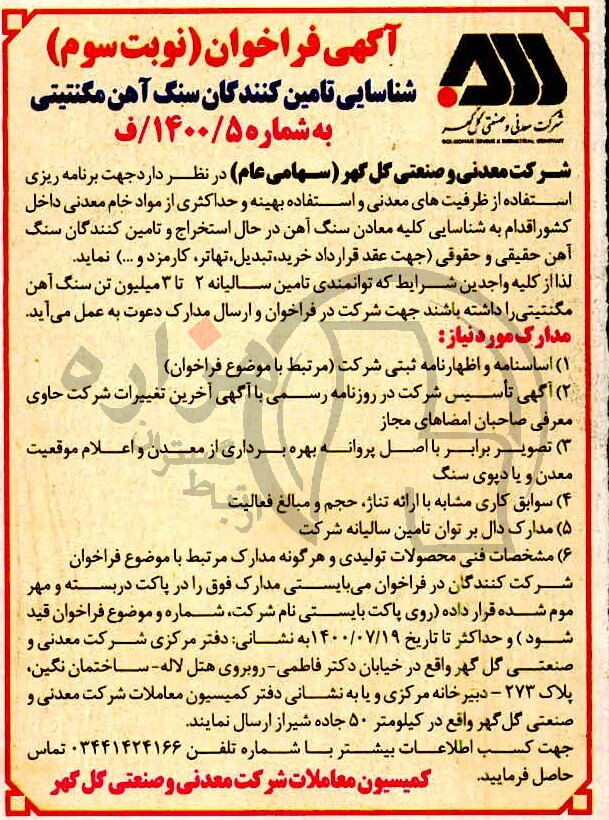 آگهی فراخوان (نوبت سوم)
شناسایی تامین کنندگان سنگ آهن مگنتیتی
به شماره ۱۴۰۰/۵/ف
شرکت معدنی و صنعتی گل گهر
GOL GOHAR MINING & INDUSTRIAL COMPANY
شرکت معدنی و صنعتی گل گهر (سهامی عام) در نظر دارد جهت برنامه ریزی
استفاده از ظرفیت های معدنی و استفاده بهینه و حداکثری از مواد خام معدنی داخل
کشور اقدام به شناسایی کلیه معادن سنگ آهن در حال استخراج و تامین کنندگان سنگ
آهن حقیقی و حقوقی (جهت عقد قرارداد خرید، تبدیل، تهاتر، کارمزد و ...) نماید.
لذا از کلیه واجدین شرایط که توانمندی تامین سالیانه ۲ تا ۳ میلیون تن سنگ آهن
مگنتیتی را داشته باشند جهت شرکت در فراخوان و ارسال مدارک دعوت به عمل می آید.
مدارک مورد نیاز:
۱) اساسنامه و اظهارنامه ثبتی شرکت (مرتبط با موضوع فراخوان)
۲) آگهی تأسیس شرکت در روزنامه رسمی با آگهی آخرین تغییرات شرکت حاوی
معرفی صاحبان امضاهای مجاز
۳) تصویر برابر با اصل پروانه بهره برداری از معدن و اعلام موقعیت
معدن و یا دپوی سنگ
۴) سوابق کاری مشابه با ارائه تناژ، حجم و مبالغ فعالیت
۵) مدارک دال بر توان تامین سالیانه شرکت
۶) مشخصات فنی محصولات تولیدی و هرگونه مدارک مرتبط با موضوع فراخوان
شرکت کنندگان در فراخوان می‌بایستی مدارک فوق را در پاکت دربسته و مهر
موم شده قرار داده (روی پاکت بایستی نام شرکت، شماره و موضوع فراخوان قید
شود) و حداکثر تا تاریخ ۱۴۰۰/۰۷/۱۹ به نشانی: دفتر مرکزی شرکت معدنی و
صنعتی گل گهر واقع در خیابان دکتر فاطمی- روبروی هتل لاله- ساختمان نگین،
پلاک ۲۷۳ - دبیرخانه مرکزی و یا به نشانی دفتر کمیسیون معاملات شرکت معدنی و
صنعتی گل گهر واقع در کیلومتر ۵۰ جاده شیراز ارسال نمایند.
جهت کسب اطلاعات بیشتر با شماره تلفن ۰۳۴۴۱۴۲۴۱۶۶ تماس
حاصل فرمایید.
کمیسیون معاملات شرکت معدنی و صنعتی گل گهر
هزاره
ارتباط گستران